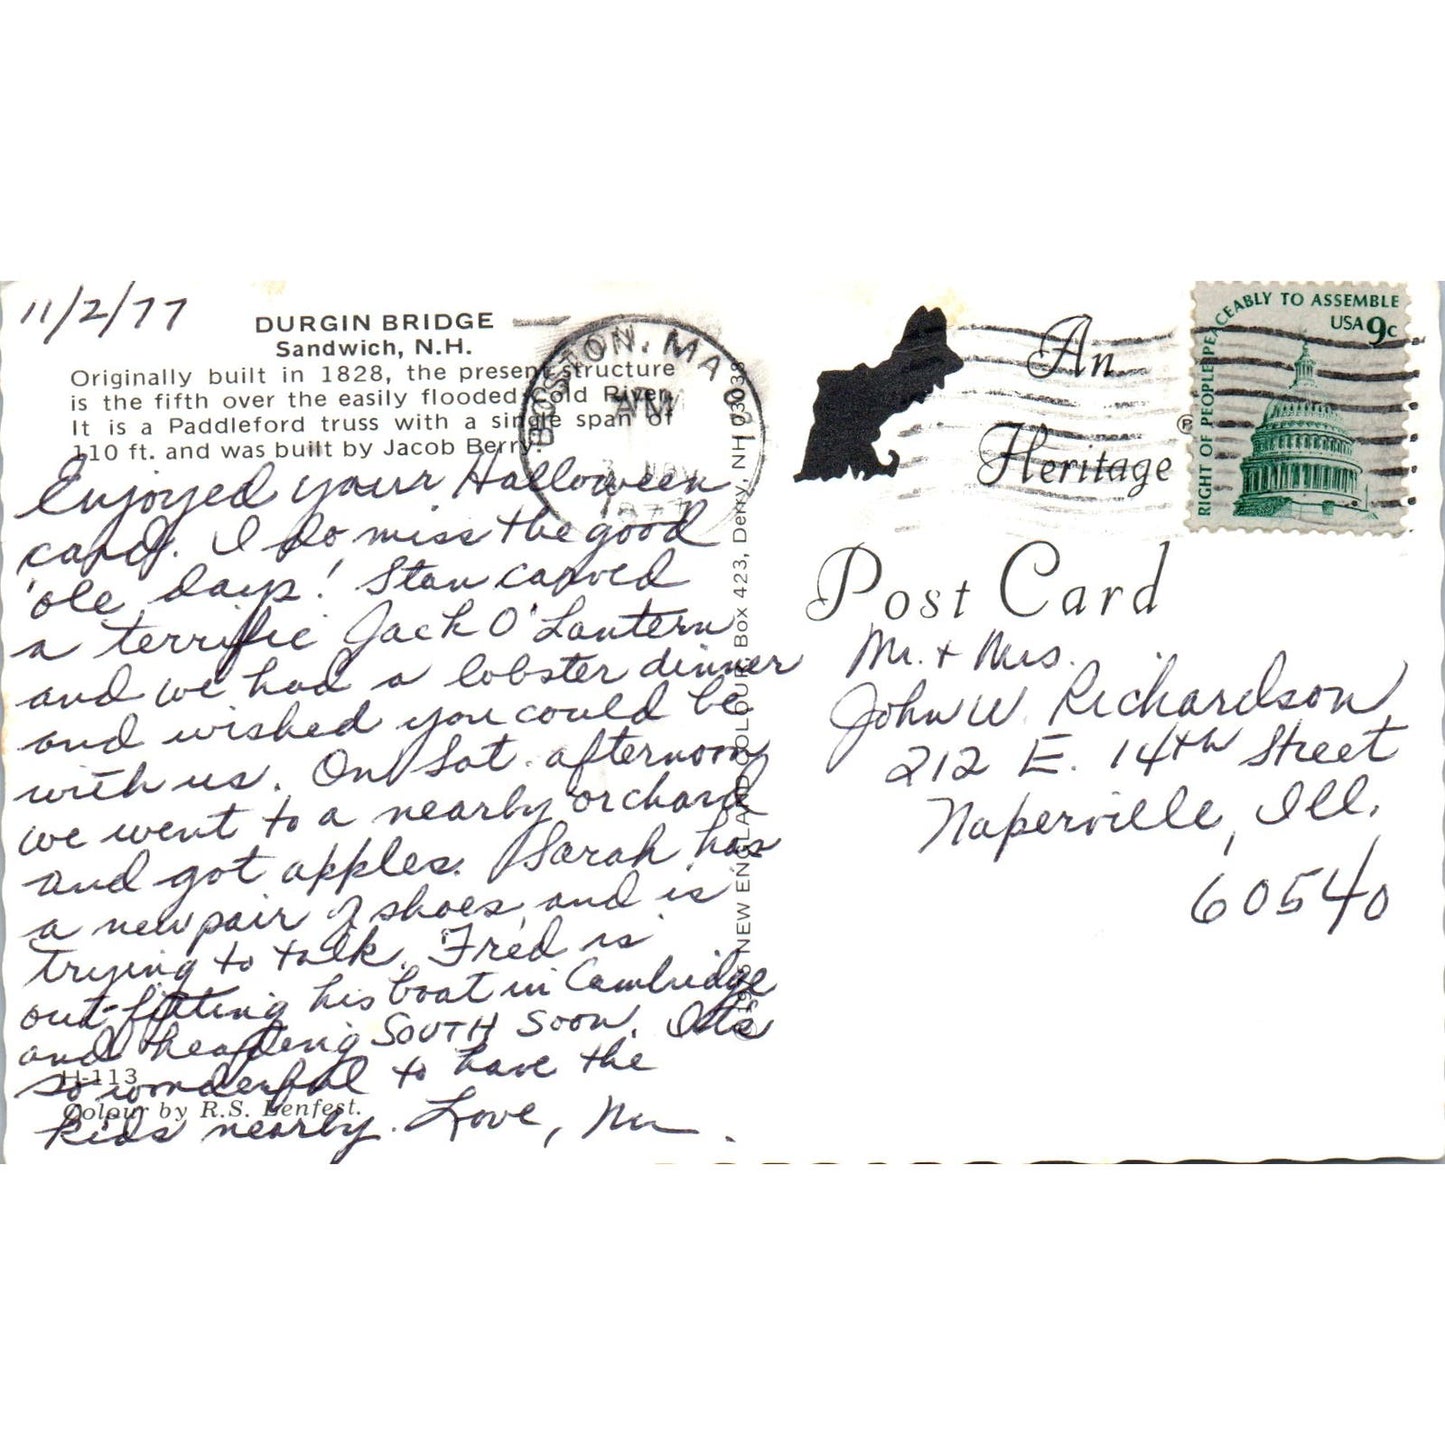 11/2/77
DURGIN BRIDGE
Sandwich, N.H.
Originally built in 1828, the present structure
is the fifth over the easily flooded Cold River.
It is a Paddleford truss with a single span of
110 ft. and was built by Jacob Berry.
Enjoyed your Halloween
card. I do miss the good
'ole days! Stan carved
a terrific Jack O'Lantern
and we had a lobster dinner
and wished you could be
with us. On Sat. afternoon
we went to a nearby orchard
and got apples. Sarah has
a new pair of shoes and is
trying to talk. Fred is
out-fitting his boat in Cambridge
and heading SOUTH SOON. It's
so wonderful to have the
kids nearby. Love,
H-113
Colour by R.S. Lenfest.
BOSTON, MA
AM
3 NOV
1977
NEW ENGLAND COLOUR, Box 423, Derry, NH 03038
An
Heritage
®
Post Card
RIGHT OF PEOPLE PEACEABLY TO ASSEMBLE
USA 9c
Mr. + Mrs.
John W. Richardson
212 E. 14th Street
Naperville, Ill.
60540